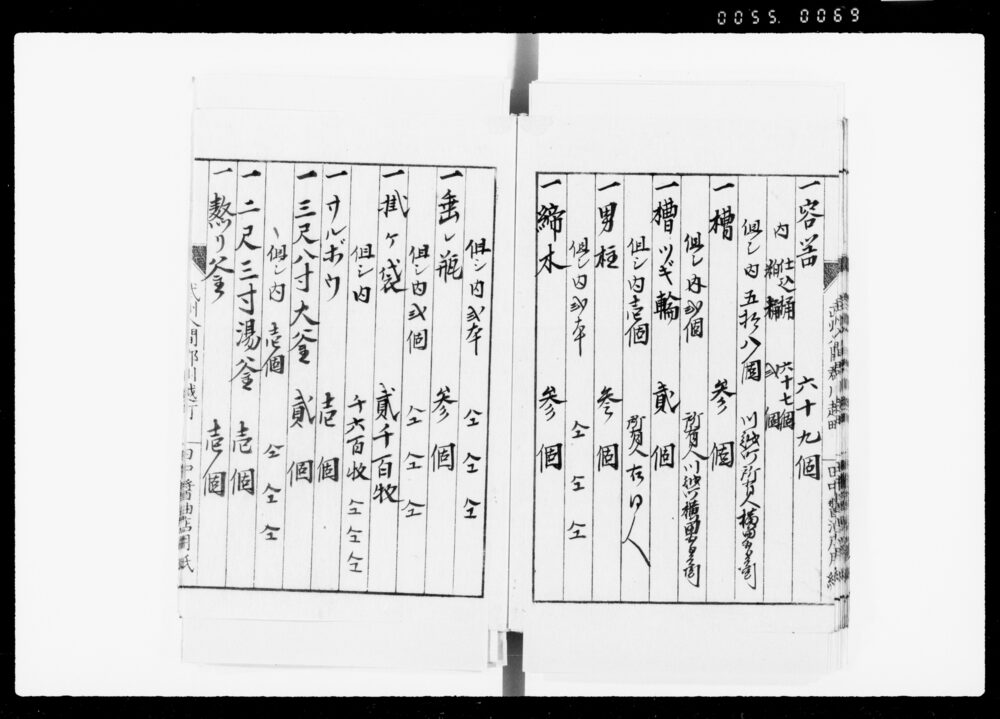 0055. 0069
一容器 六十九個
内 仕込桶 六十七個
糀糯 弐個
但シ内五拾八個 川越町所有人横田五郎
一槽 参個
但シ内弐個 所有人川越町横田五郎
一槽ツギ輪 貳個
但シ内壱個 所有人右同人
一男柱 参個
但シ内弐本 仝 仝 仝
一締木 参個
但シ内弐本 仝 仝 仝
一垂レ瓶 参個
但シ内弐個 仝 仝 仝
一掛ケ袋 貳千百枚
但シ内 千六百枚 仝 仝 仝
一サルボウ 壱個
一三尺八寸大釜 貳個
但シ内 壱個 仝 仝 仝
一二尺三寸湯釜 壱個
一熬リ釜 壱個
武州入間郡川越町 田中醤油店用紙